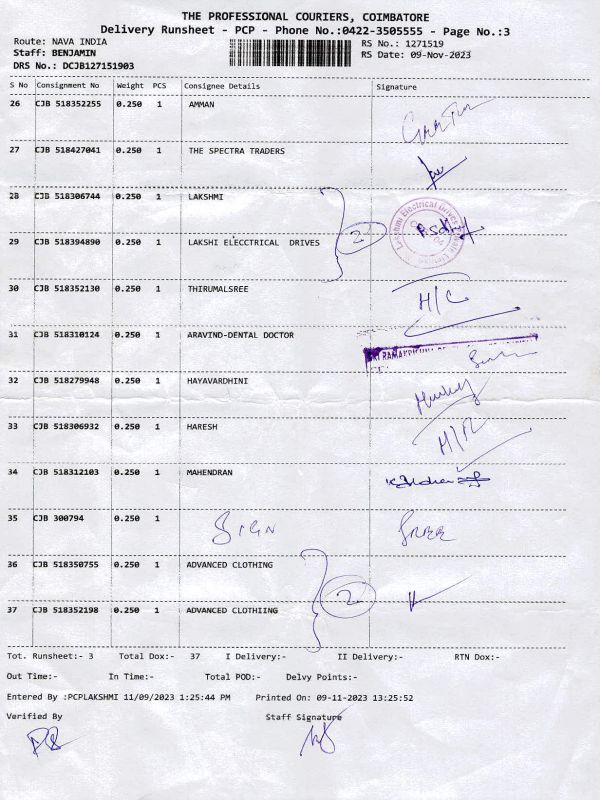 THE PROFESSIONAL COURIERS, COIMBATORE
Delivery Runsheet - PCP - Phone No.:0422-3505555 - Page No.:3
Route: NAVA INDIA
RS No.: 1271519
Staff: BENJAMIN
RS Date: 09-Nov-2023
DRS No.: DCJB127151903
S No Consignment No Weight PCS Consignee Details Signature
26 CJB 518352255 0.250 1 AMMAN
27 CJB 518427041 0.250 1 THE SPECTRA TRADERS
28 CJB 518306744 0.250 1 LAKSHMI
2
29 CJB 518394890 0.250 1 LAKSHI ELECCTRICAL DRIVES
30 CJB 518352130 0.250 1 THIRUMALSREE
H/C
31 CJB 518310124 0.250 1 ARAVIND-DENTAL DOCTOR
32 CJB 518279948 0.250 1 HAYAVARDHINI
33 CJB 518306932 0.250 1 HARESH
34 CJB 518312103 0.250 1 MAHENDRAN
35 CJB 300794 0.250 1 SIGN
36 CJB 518350755 0.250 1 ADVANCED CLOTHING
2
37 CJB 518352198 0.250 1 ADVANCED CLOTHIING
Tot. Runsheet:- 3 Total Dox:- 37 I Delivery:- II Delivery:- RTN Dox:-
Out Time:- In Time:- Total POD:- Delvy Points:-
Entered By :PCPLAKSHMI 11/09/2023 1:25:44 PM Printed On: 09-11-2023 13:25:52
Verified By Staff Signature